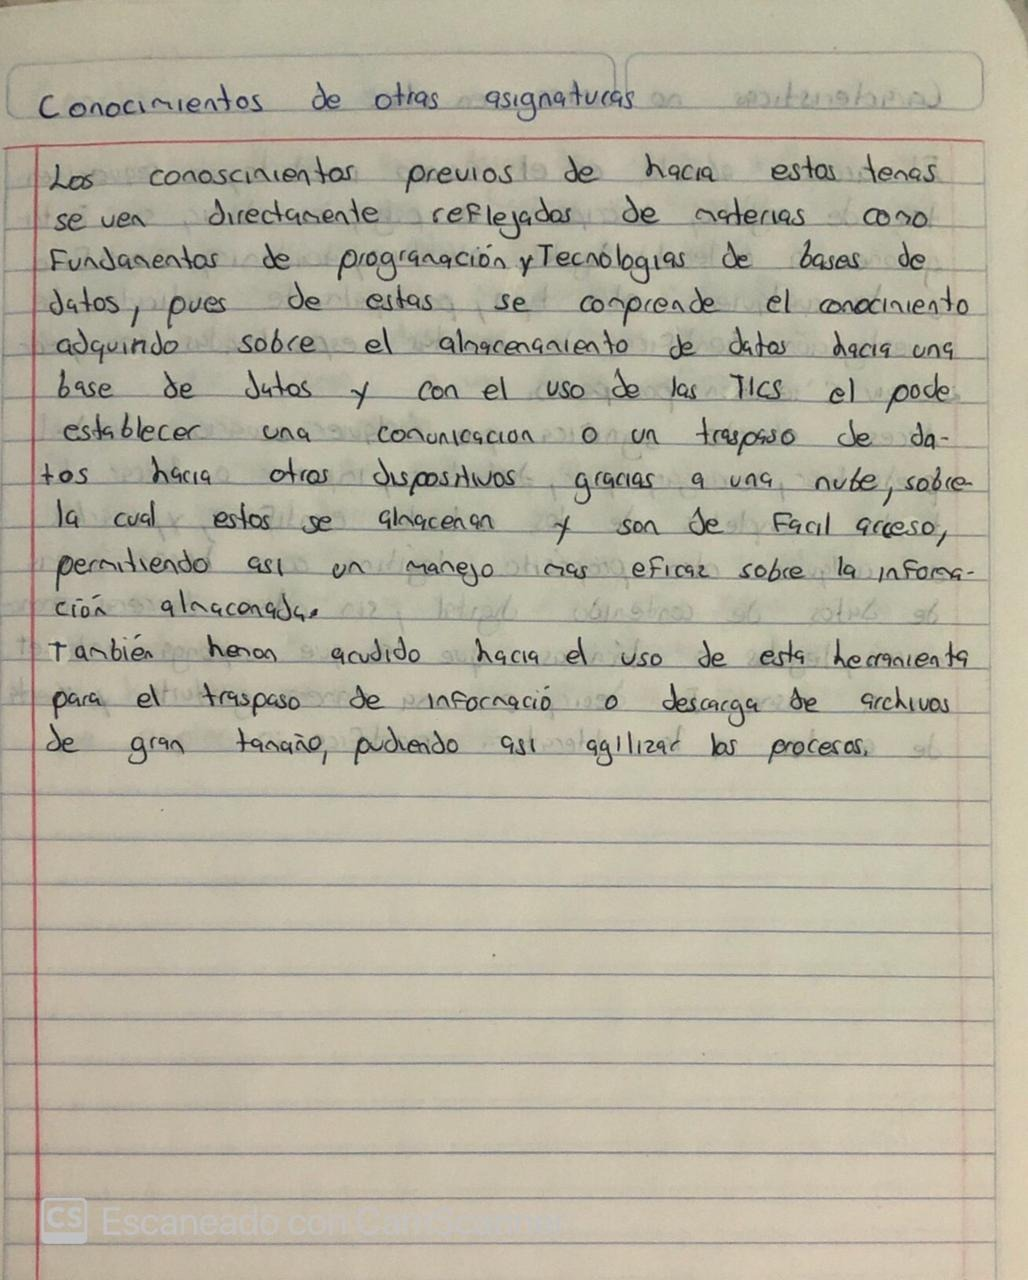 Conocimientos de otras asignaturas
Los conoscimientos previos de hacia estos temas
se ven directamente reflejados de materias como
Fundamentos de programación y Tecnologías de bases de
datos, pues de estas se comprende el conocimiento
adquirido sobre el almacenamiento de datos hacia una
base de datos y con el uso de las TICS el pode
establecer una comunicacion o un traspaso de da-
tos hacia otros dispositivos gracias a una nube, sobre
la cual estos se almacenan y son de Facil acceso,
permitiendo asi un manejo mas eficaz sobre la informa-
ción almacenada.
También hemos acudido hacia el uso de esta herramienta
para el traspaso de informació o descarga de archivos
de gran tamaño, pudiendo asi agilizar los procesos.
CS Escaneado con CamScanner